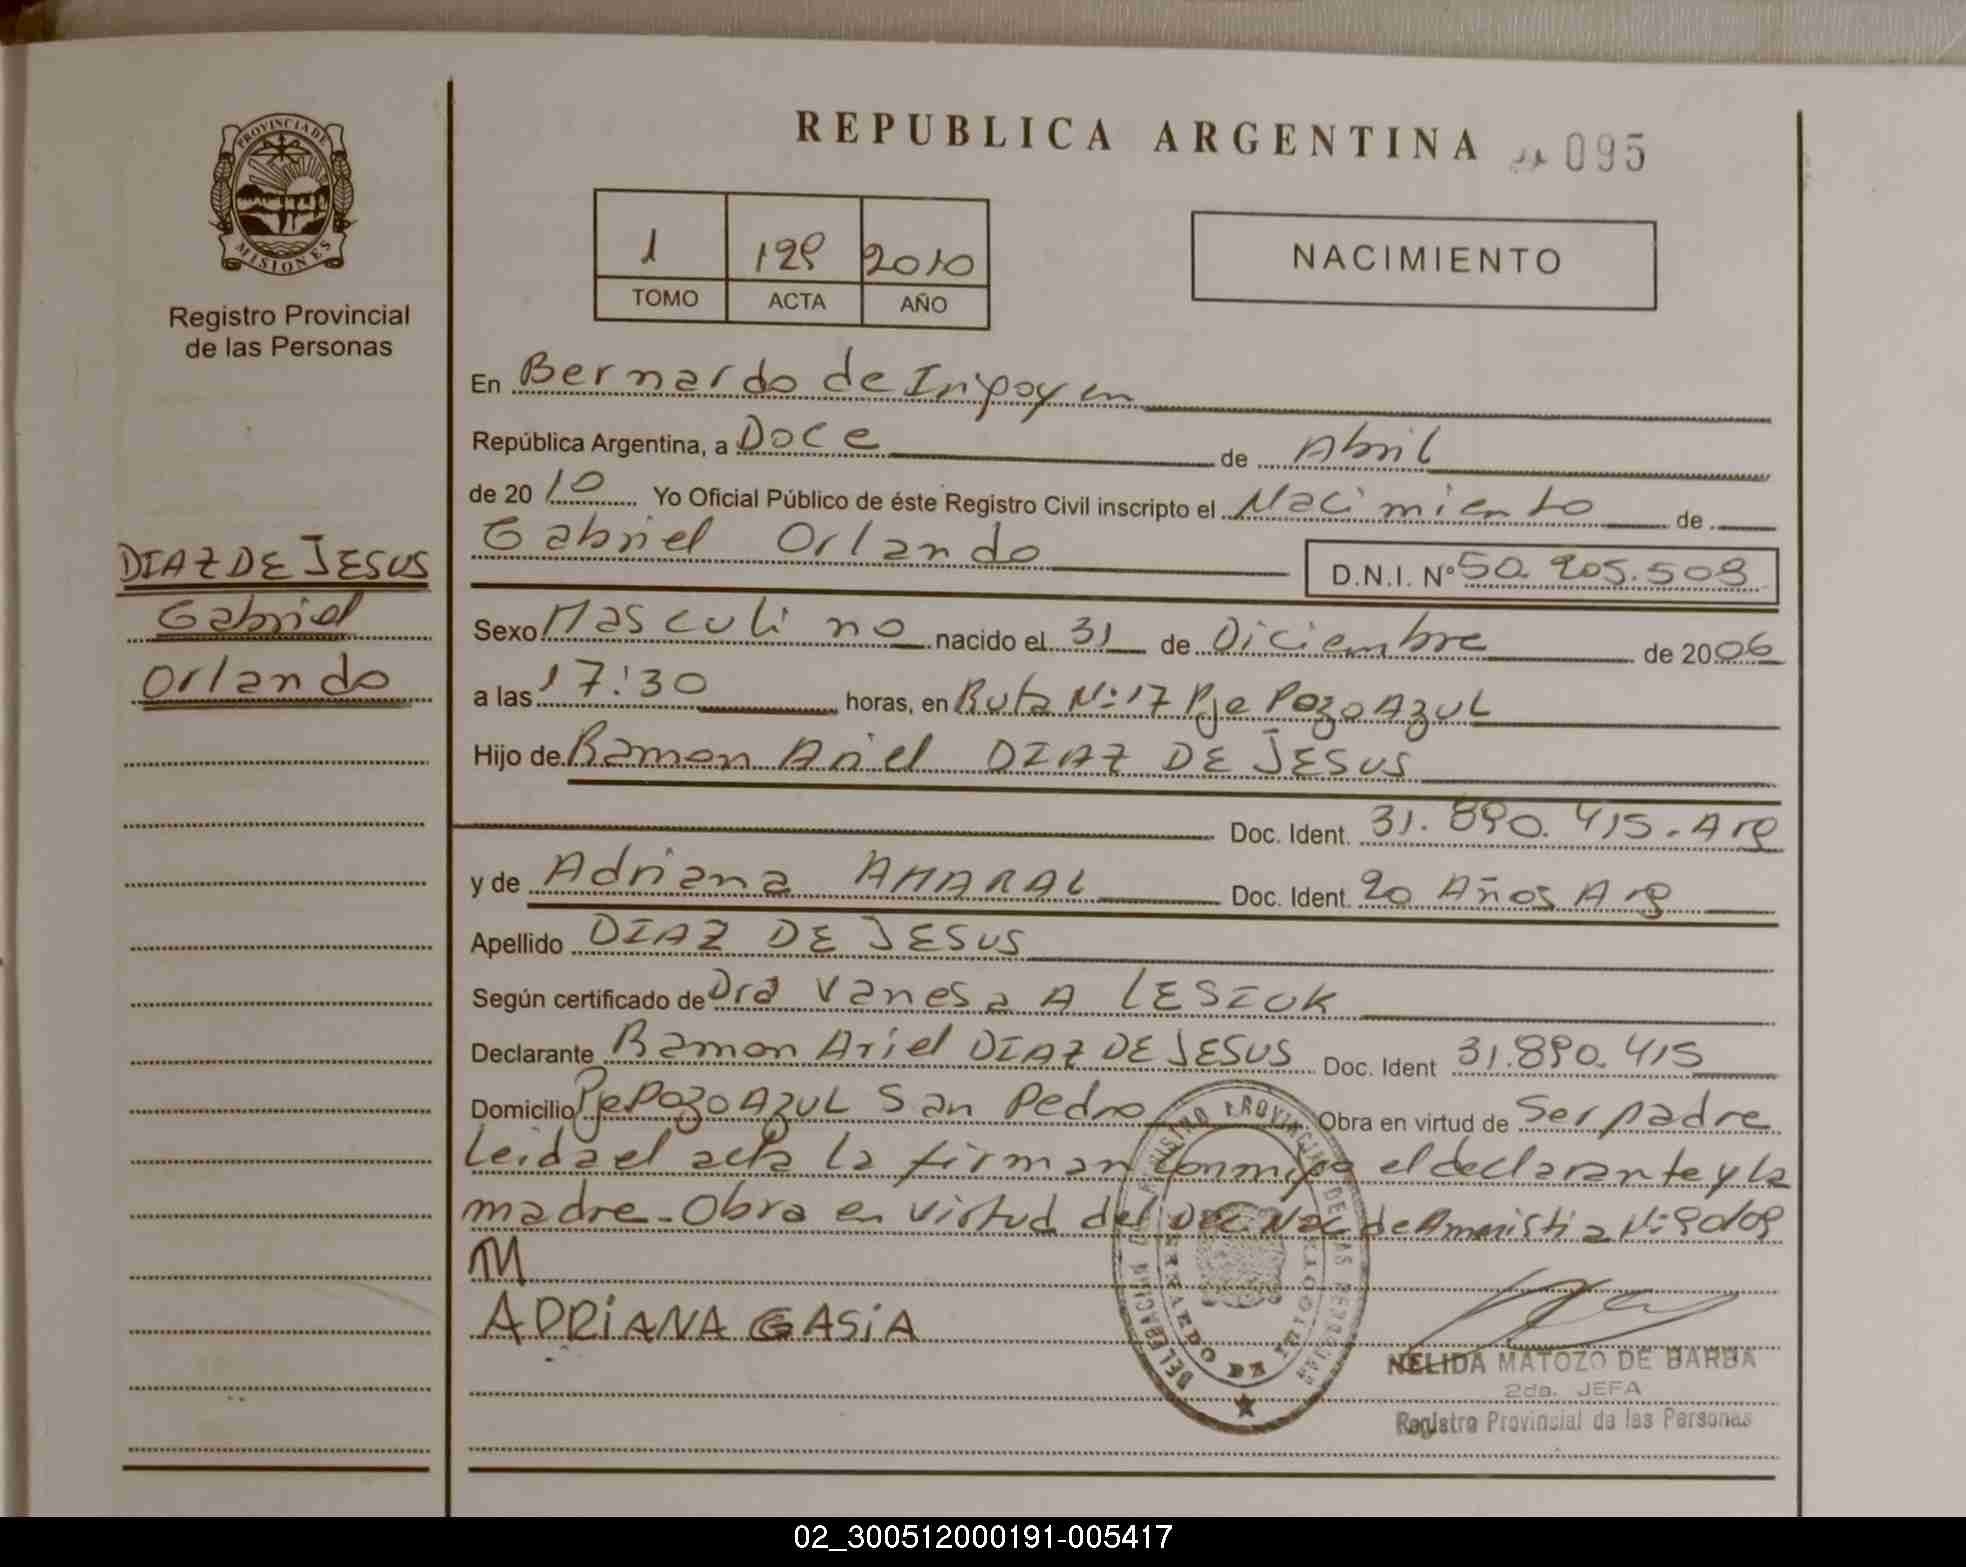 REPUBLICA ARGENTINA 095
PROVINCIA DE
MISIONES
Registro Provincial
de las Personas
1 129 2010
TOMO ACTA AÑO
NACIMIENTO
En Bernardo de Irigoyen
República Argentina, a Doce de Abril
de 2010 Yo Oficial Público de éste Registro Civil inscripto el Nacimiento de
Gabriel Orlando D.N.I. Nº 50.205.509
DIAZ DE JESUS
Gabriel
Orlando
Sexo Masculino nacido el 31 de Diciembre de 2006
a las 17:30 horas, en Ruta Nº 17 Pje Pozo Azul
Hijo de Ramon Ariel DIAZ DE JESUS
Doc. Ident. 31.890.415 - Arg
y de Adriana AMARAL Doc. Ident. 20 Años Arg
Apellido DIAZ DE JESUS
Según certificado de Dra Vanesa A LESIUK
Declarante Ramon Ariel DIAZ DE JESUS Doc. Ident 31.890.415
Domicilio Pje Pozo Azul San Pedro Obra en virtud de Ser padre
Leida el acta la firman conmigo el declarante y la
madre - Obra en virtud del Dec Nac de Amnistia Nº 90/09
ADRIANA GASiA
NELIDA MATOZO DE BARBA
2da. JEFA
Registro Provincial de las Personas
02_300512000191-005417